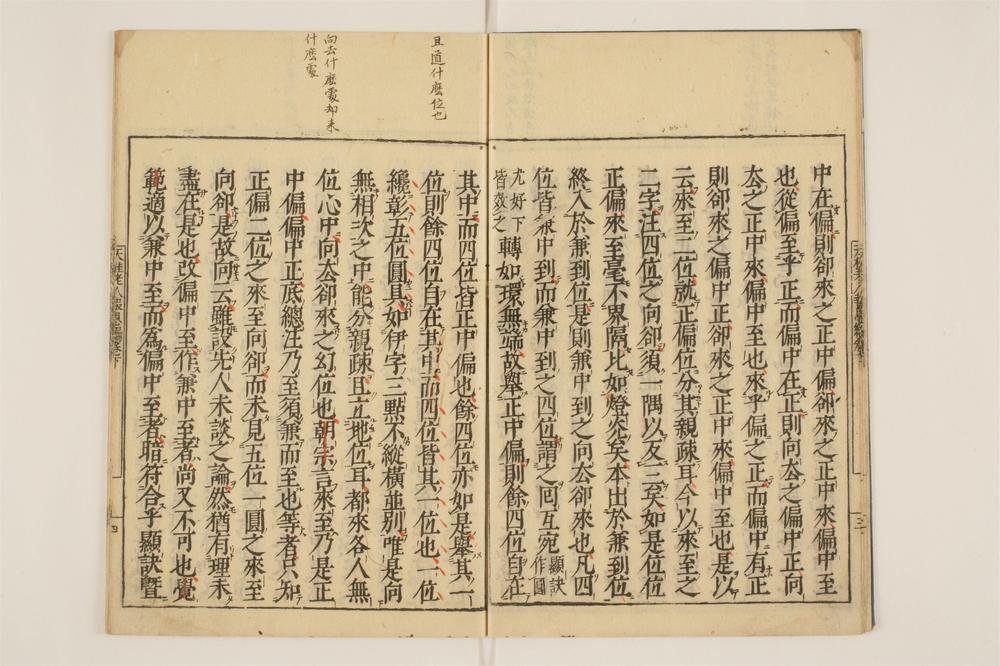 中在偏則卻來之正中偏卻來之正中來偏中至
也從偏至乎正而偏中在正則向去之偏中正向
去之正中來偏中至也來乎偏之正而偏中有正
則卻來之偏中正卻來之正中來偏中至也是以
云來至二位就正偏位分其親疎耳今以來至之
二字注四位之向卻須一隅以反三矣如是位位
正偏來至毫不界隔比如燈光矣本出於兼到位
終入於兼到位是則兼中到之向去卻來也凡四
位皆兼中到而兼中到之四位謂之回互宛顯訣作圓
尤好下皆效之轉如環無端故擧正中偏則餘四位自在
其中而四位皆正中偏也餘四位亦如是擧其一
位則餘四位自在其中而四位皆其一位也一位
纔彰五位圓具如伊字三點不縱橫並別唯是向
無相次之中能分親疎且立地位耳都來各人無
位心中向去卻來之幻位也朝宗言來至乃是正
中偏偏中正底總汪乃至須兼而至也等者只知
正偏二位之來至向卻而未見五位一圓之來至
向卻是故向云雖設先人未談之論然猶有理未
盡在是也改偏中至作兼中至者尚又不可也覺
範適以兼中至而爲偏中至者暗符合乎顯訣曁
且道什麼位也
向去什麼處却来
什麼處